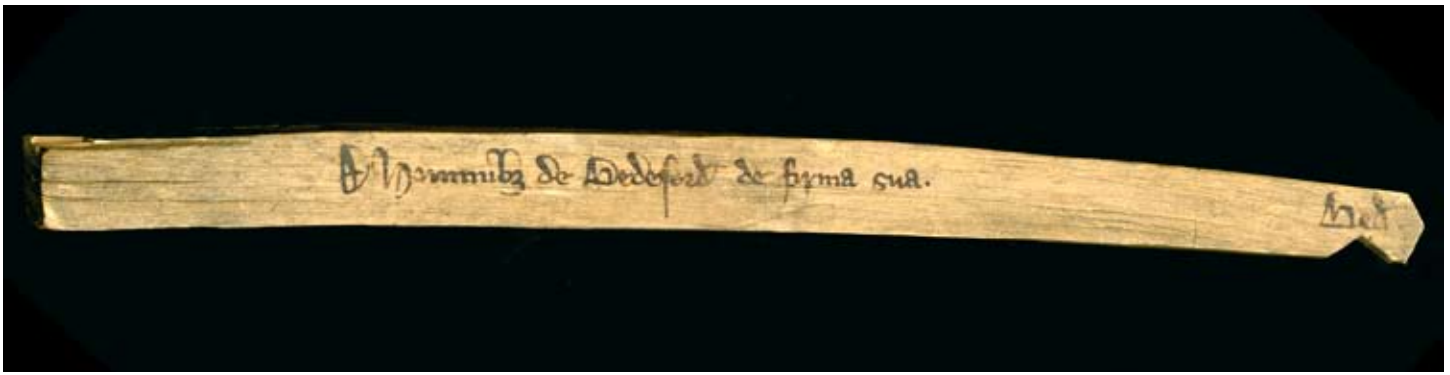 A Hominibȝ de Bedeford de firma sua.
Bed